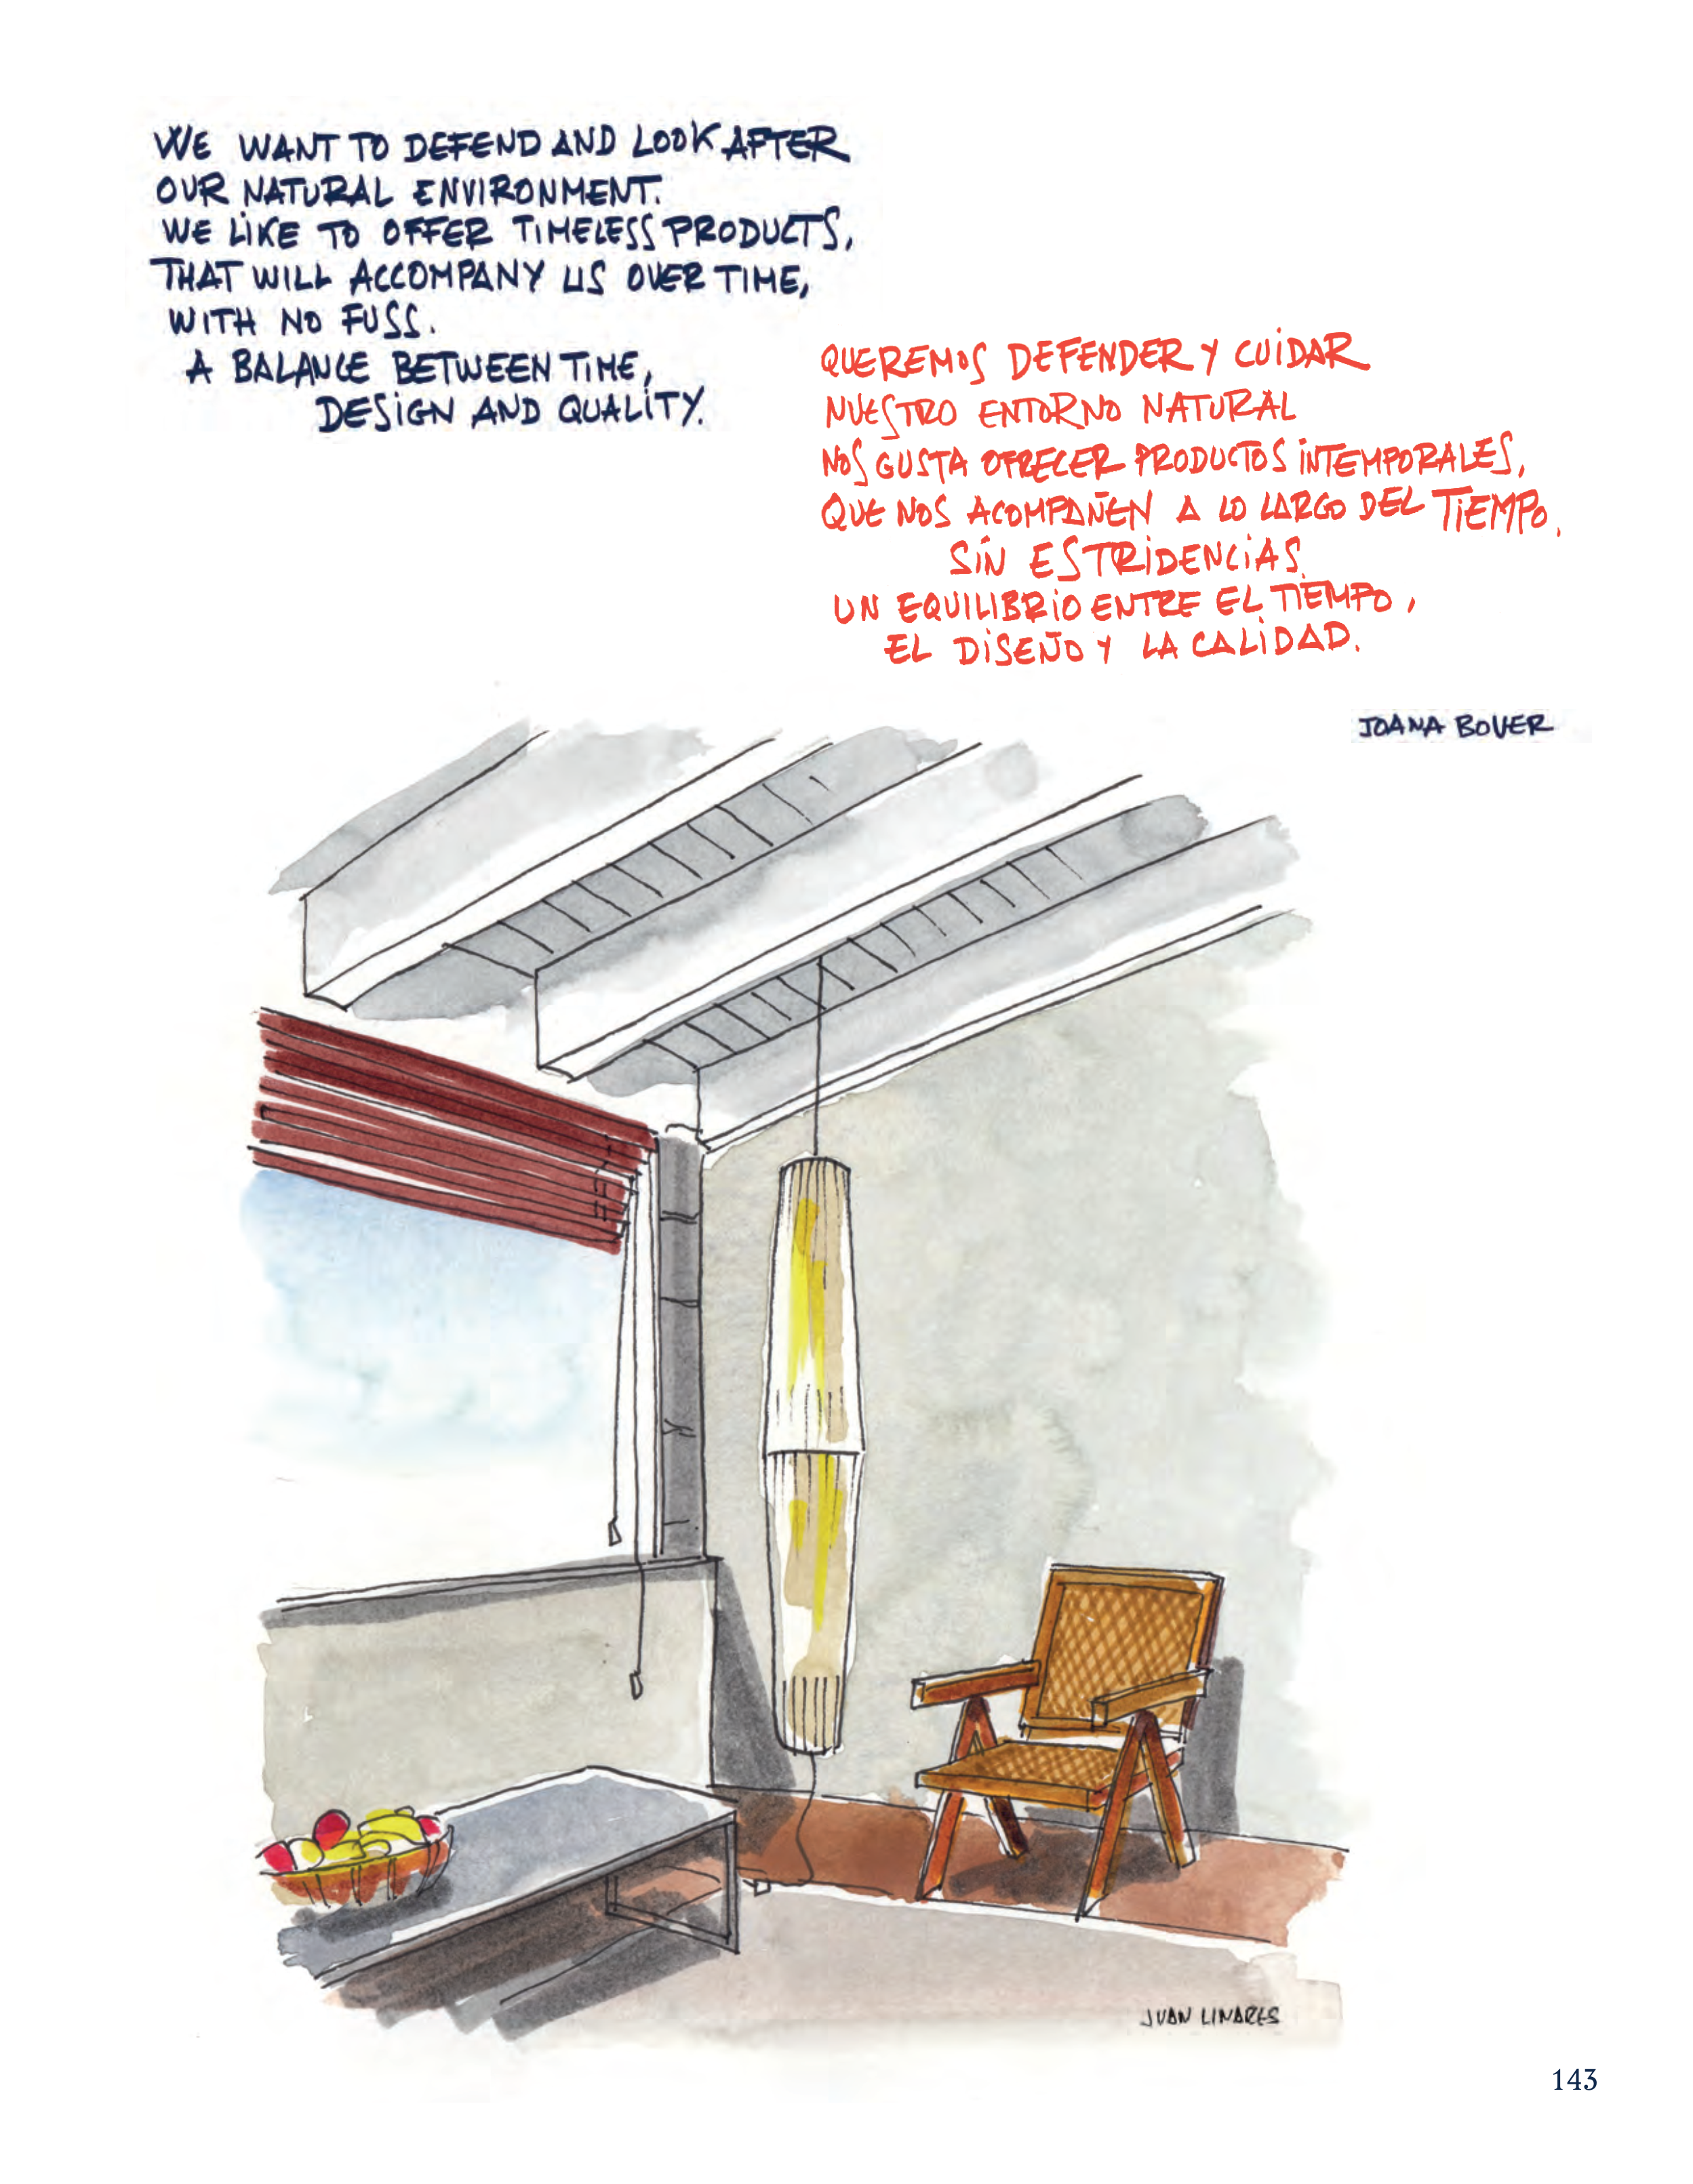 WE WANT TO DEFEND AND LOOK AFTER
OUR NATURAL ENVIRONMENT.
WE LIKE TO OFFER TIMELESS PRODUCTS,
THAT WILL ACCOMPANY US OVER TIME,
WITH NO FUSS.
A BALANCE BETWEEN TIME,
DESIGN AND QUALITY.
QUEREMOS DEFENDER Y CUIDAR
NUESTRO ENTORNO NATURAL
NOS GUSTA OFRECER PRODUCTOS INTEMPORALES,
QUE NOS ACOMPAÑEN A LO LARGO DEL TIEMPO,
SIN ESTRIDENCIAS.
UN EQUILIBRIO ENTRE EL TIEMPO,
EL DISEÑO Y LA CALIDAD.
JOANA BOVER
JUAN LINARES
143